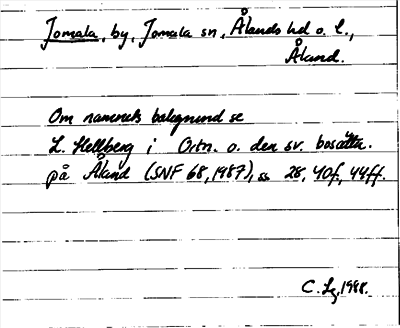 Jomala, by, Jomala sn, Ålands hd o. l.,
Åland.
Om namnets bakgrund se
L. Hellberg i Ortn. o. den sv. bosättn.
på Åland (SNF 68, 1987), ss 28, 40f, 44ff.
C. Lg, 1998.